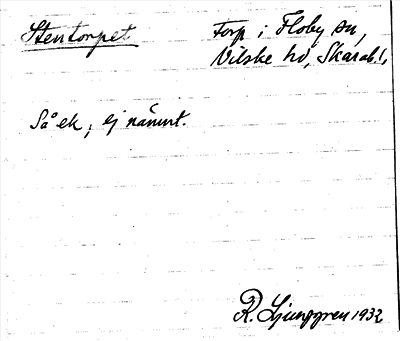 Stentorpet
Torp i Floby sn,
Vilske hd, Skarab.l.,
Så ek, ej nämnt.
R. Ljunggren 1932